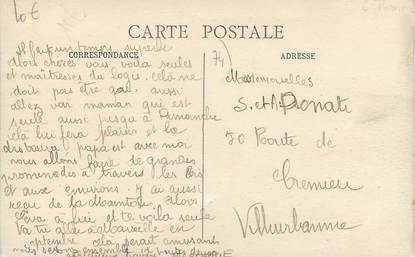 10€
CARTE POSTALE
CORRESPONDANCE
ADRESSE
74
Il fait un temps superbe
Alors chères vous voila seules
et maitresses du logis. celà ne
doit pas etre gai, aussi
allez voir maman qui est
seule aussi jusqu'à Dimanche
celà lui fera plaisir et la
distraira papa est avec moi
nous allons faire de grandes
promenades à travers les bois
et aux environs. J'ai aussi
reçu de la
à lui et te voila seule
Va tu allé à Albertville en
septembre celà serait amusant
nous serons ensemble
Mesdemoiselles
S. et A. Donati
50 Route de
Cremieu
Villeurbanne